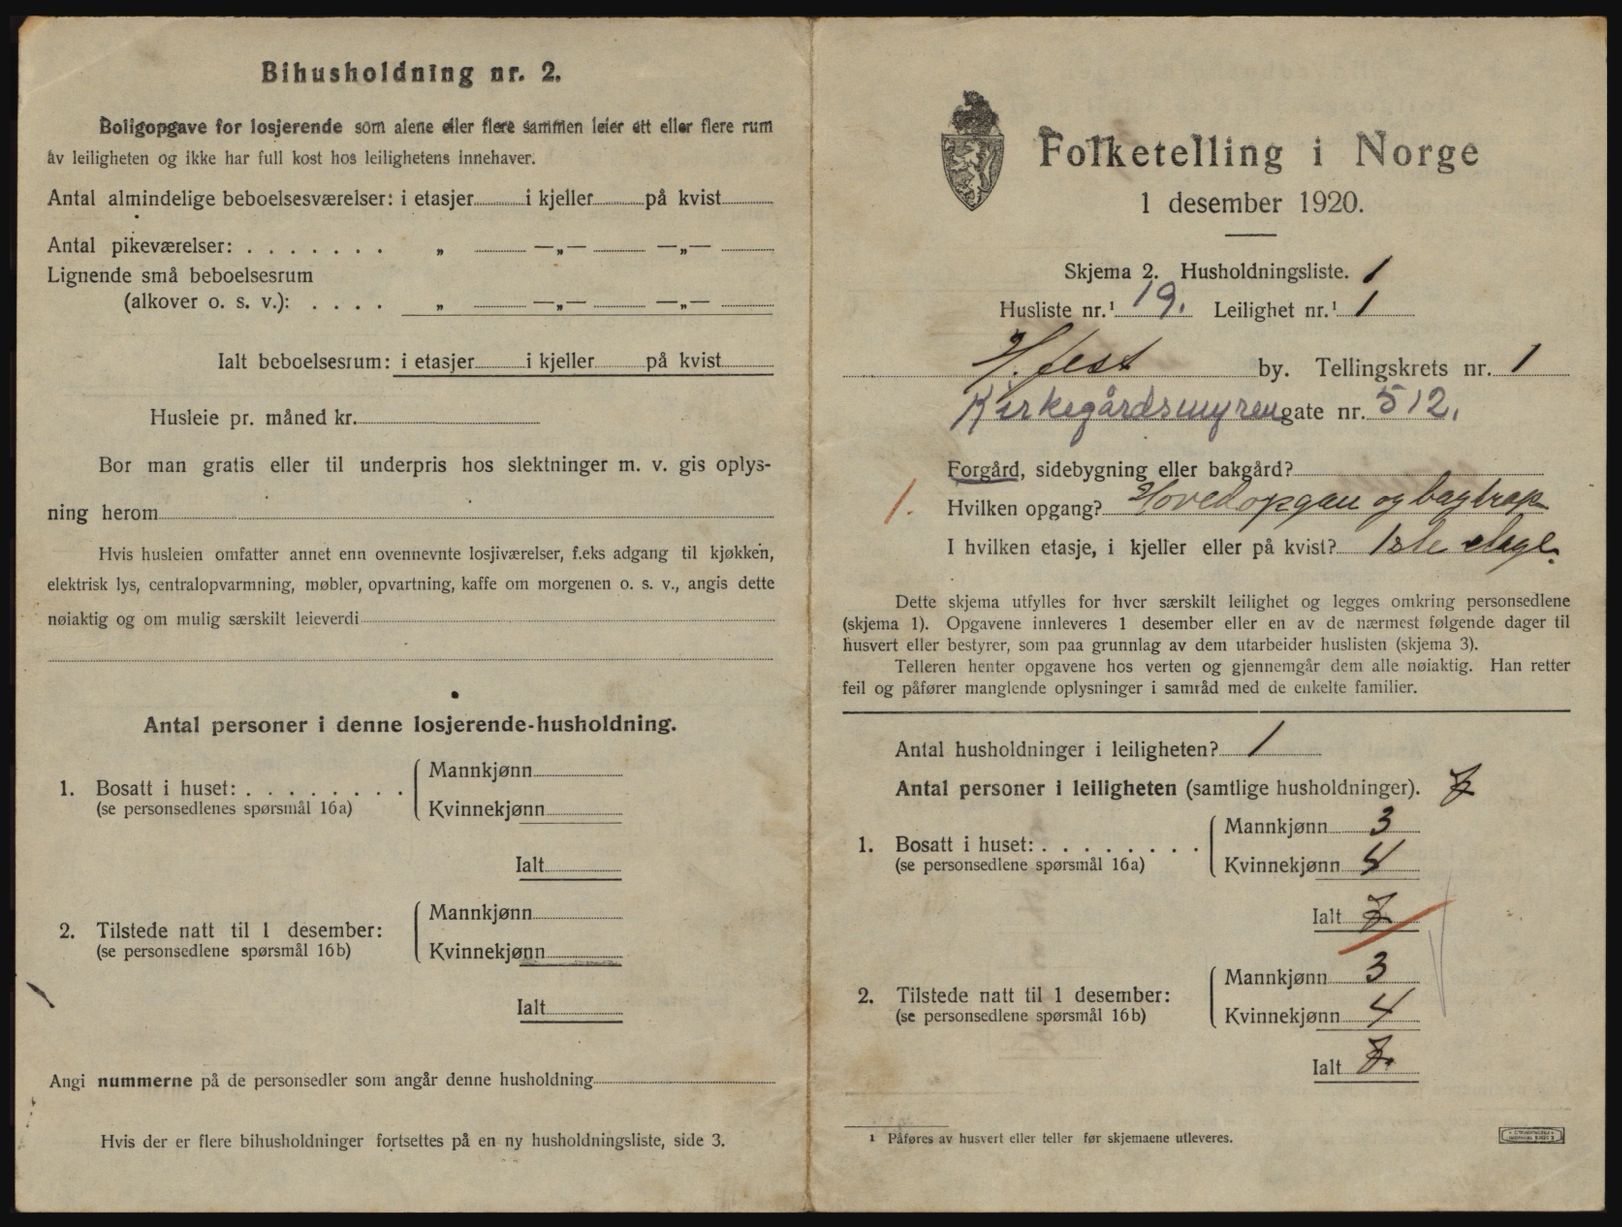 Bihusholdning nr. 2.
Boligopgave for losjerende som alene eller flere sammen leier ett eller flere rum
av leiligheten og ikke har full kost hos leilighetens innehaver.
Antal almindelige beboelsesværelser: i etasjer i kjeller på kvist
Antal pikeværelser: . . . . . . . „ —„— —„—
Lignende små beboelsesrum
(alkover o. s. v.): . . . . „ —„— —„—
Ialt beboelsesrum: i etasjer i kjeller på kvist
Husleie pr. måned kr.
Bor man gratis eller til underpris hos slektninger m. v. gis oplys-
ning herom
Hvis husleien omfatter annet enn ovennevnte losjiværelser, f.eks adgang til kjøkken,
elektrisk lys, centralopvarmning, møbler, opvartning, kaffe om morgenen o. s. v., angis dette
nøiaktig og om mulig særskilt leieverdi
Antal personer i denne losjerende-husholdning.
1. Bosatt i huset: . . . . . . . . Mannkjønn
(se personsedlenes spørsmål 16a) Kvinnekjønn
Ialt
2. Tilstede natt til 1 desember: Mannkjønn
(se personsedlene spørsmål 16b) Kvinnekjønn
Ialt
Angi nummerne på de personsedler som angår denne husholdning
Hvis der er flere bihusholdninger fortsettes på en ny husholdningsliste, side 3.
Folketelling i Norge
1 desember 1920.
Skjema 2. Husholdningsliste. 1
Husliste nr.¹ 19. Leilighet nr.¹ 1
H.fest by. Tellingskrets nr. 1
Kirkegårdsmyren gate nr. 512.
Forgård, sidebygning eller bakgård?
1. Hvilken opgang? Hovedopgan og bagtrap
I hvilken etasje, i kjeller eller på kvist? 1ste etage.
Dette skjema utfylles for hver særskilt leilighet og legges omkring personsedlene
(skjema 1). Opgavene innleveres 1 desember eller en av de nærmest følgende dager til
husvert eller bestyrer, som paa grunnlag av dem utarbeider huslisten (skjema 3).
Telleren henter opgavene hos verten og gjennemgår dem alle nøiaktig. Han retter
feil og påfører manglende oplysninger i samråd med de enkelte familier.
Antal husholdninger i leiligheten? 1
Antal personer i leiligheten (samtlige husholdninger). 7
1. Bosatt i huset: . . . . . . . . Mannkjønn 3
(se personsedlene spørsmål 16a) Kvinnekjønn 4
Ialt 7
2. Tilstede natt til 1 desember: Mannkjønn 3
(se personsedlene spørsmål 16b) Kvinnekjønn 4
Ialt 7.
¹ Påføres av husvert eller teller før skjemaene utleveres.